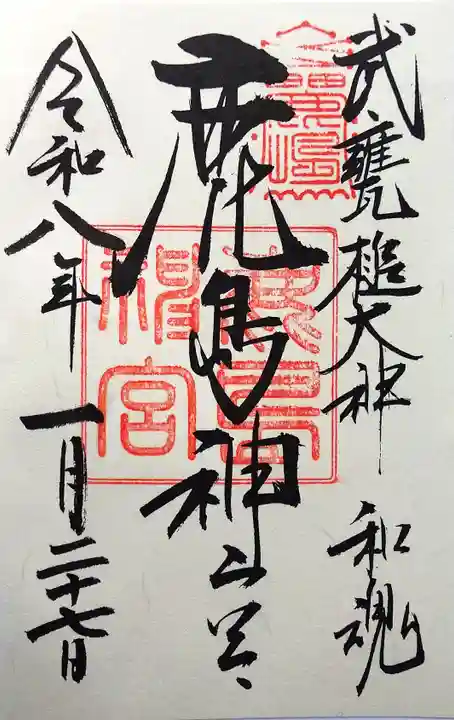 武甕槌大神 和魂
鹿島神宮
令和八年 一月二十七日
鹿島
神宮